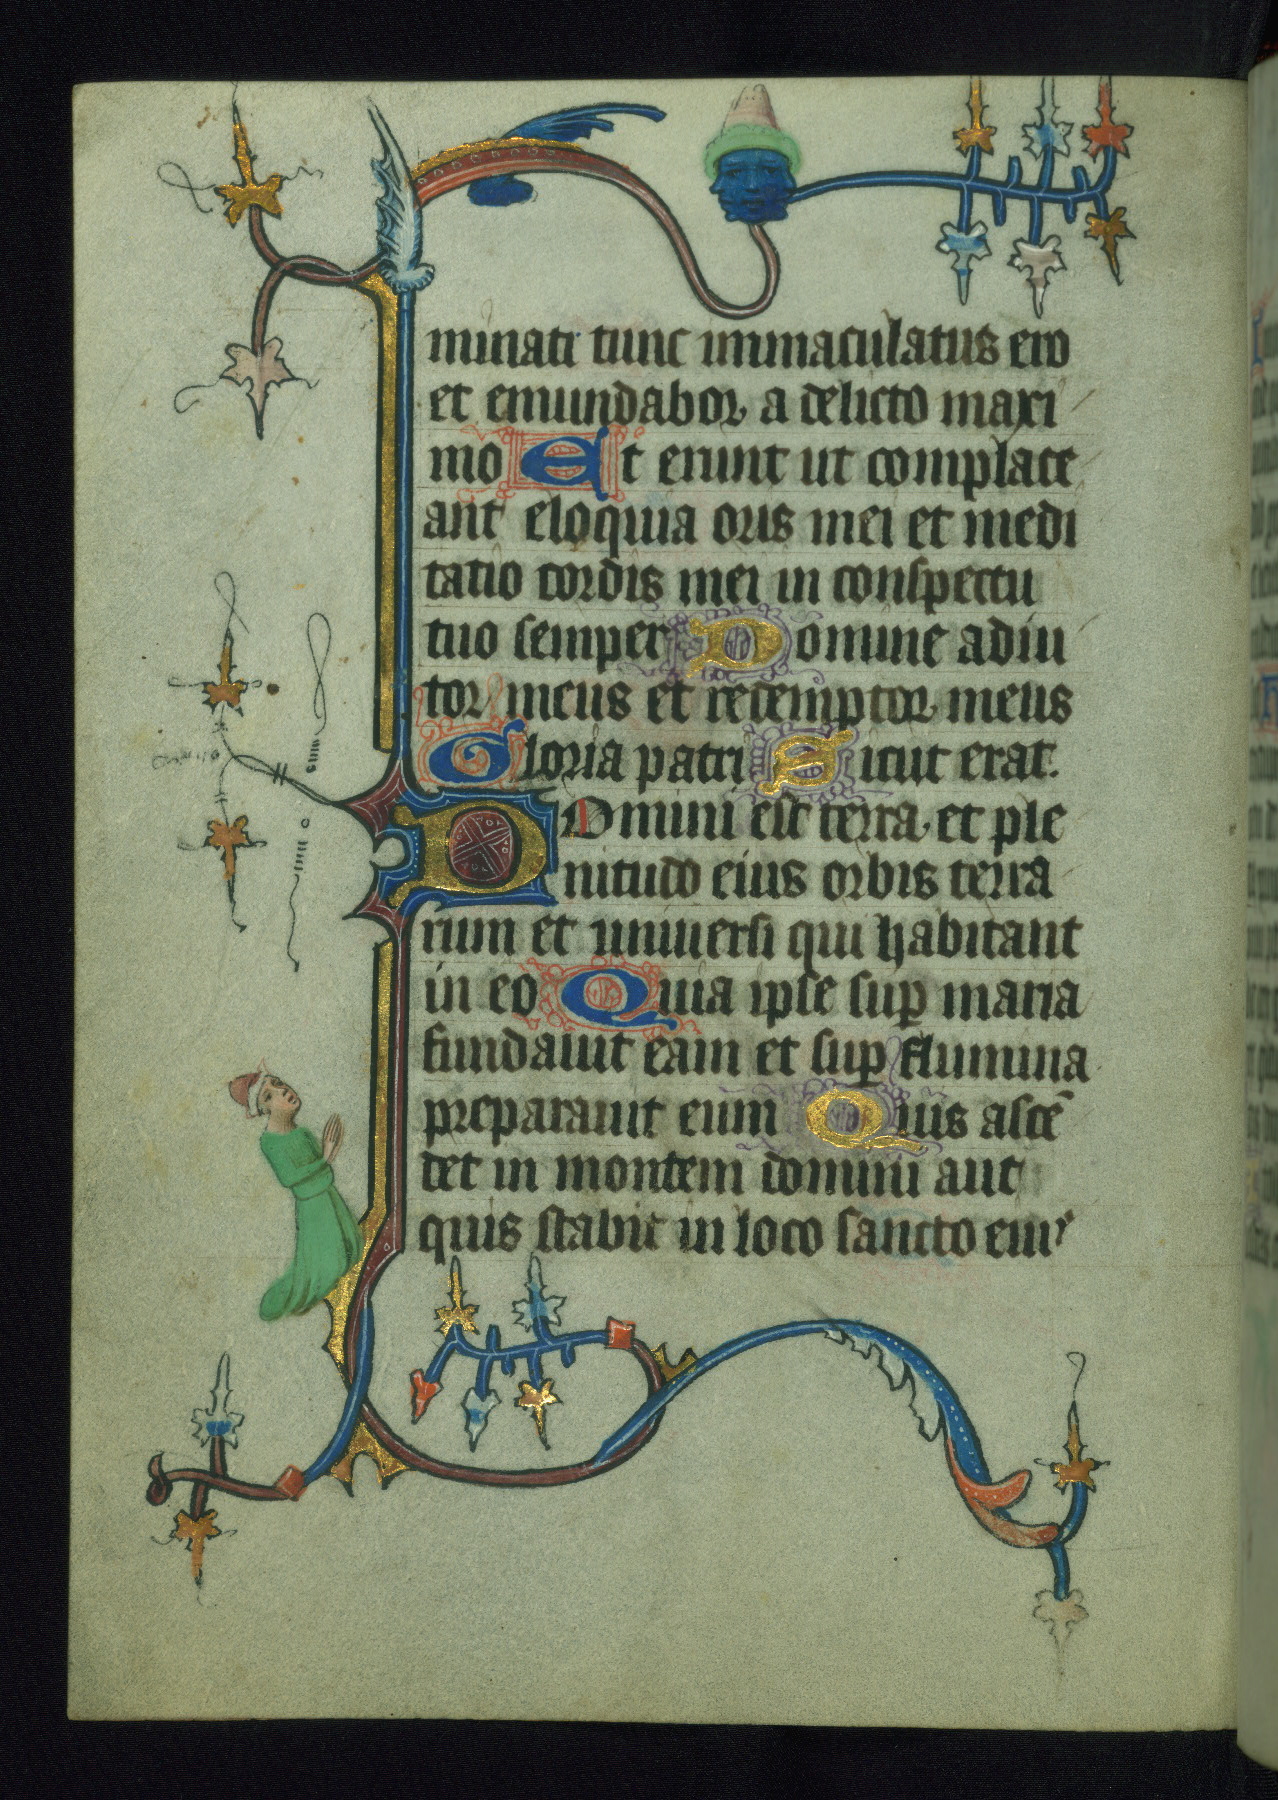 minati tunc immaculatus ero
et emundabor a delicto maxi
mo Et erunt ut complace
ant eloquia oris mei et medi
tatio cordis mei in conspectu
tuo semper Domine adiu
tor meus et redemptor meus
Gloria patri Sicut erat.
Domini est terra et ple
nitudo eius orbis terra
rum et universi qui habitant
in eo Quia ipse sup maria
fundavit eam et sup flumina
preparavit eum Quis ascē
det in montem domini aut
quis stabit in loco sancto eiuꝰ